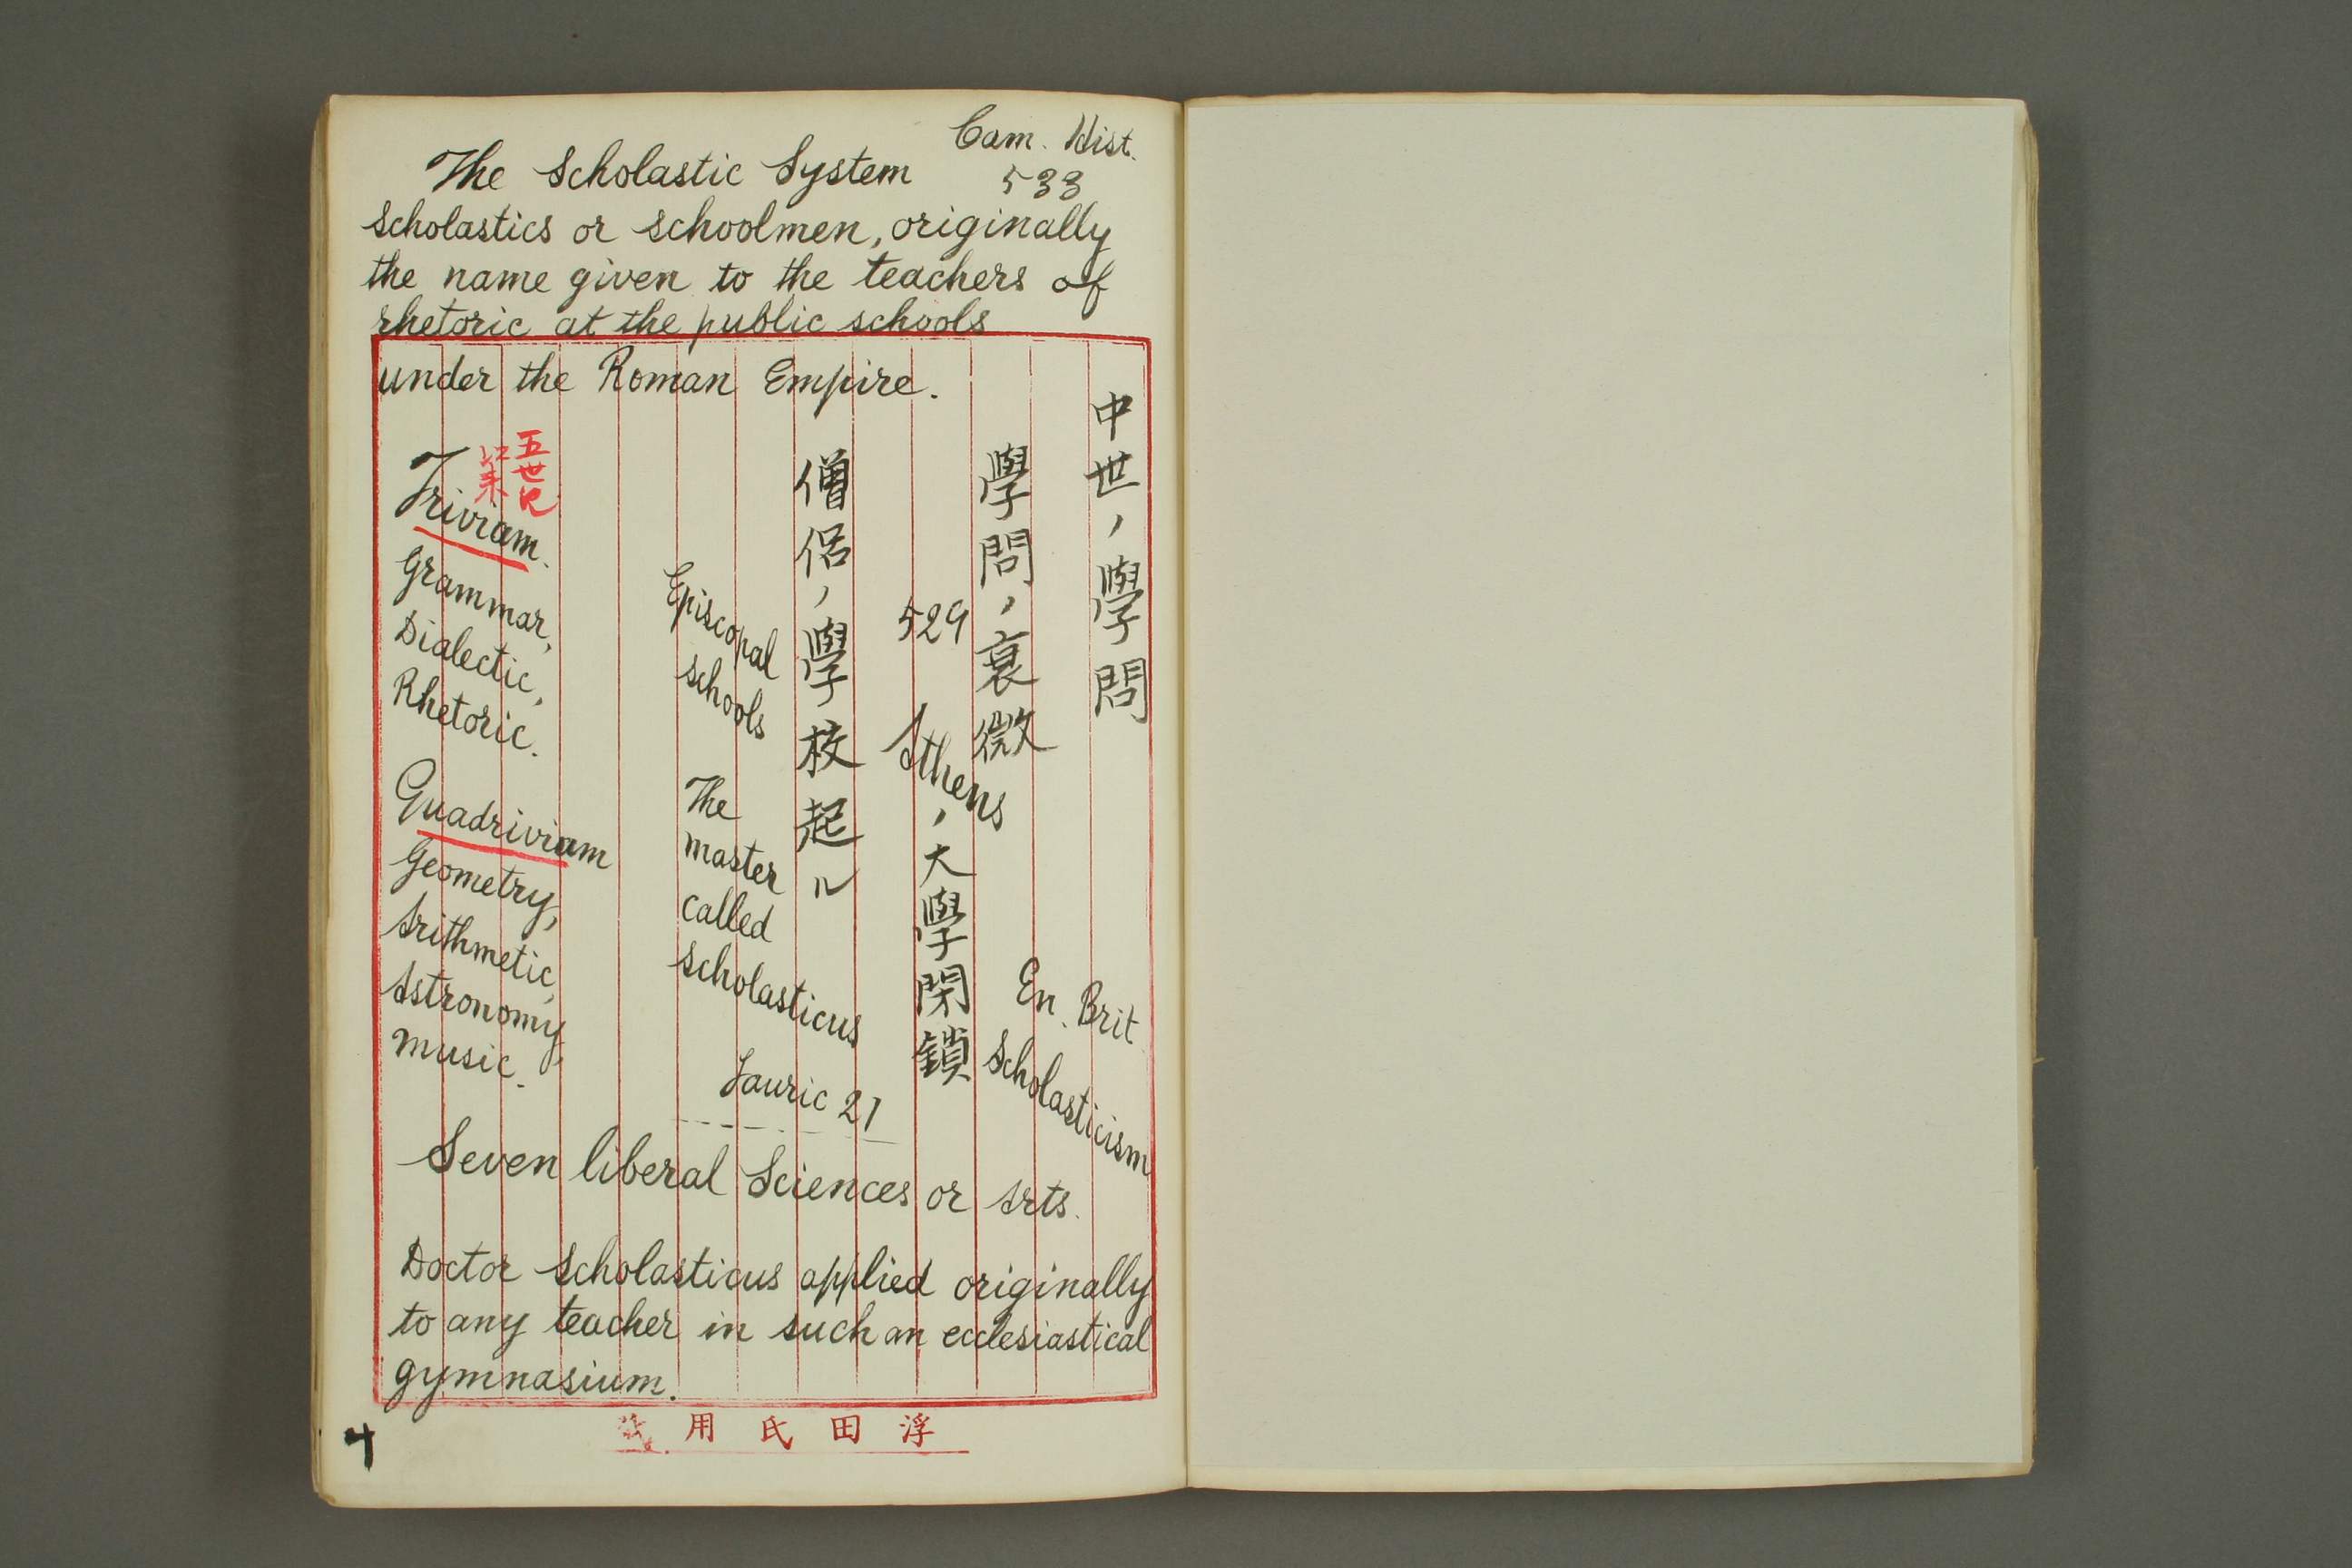 Cam. Hist.
533
The Scholastic System
Scholastics or schoolmen, originally
the name given to the teachers of
rhetoric at the public schools
under the Roman Empire.
中世ノ學問
學問ノ衰微
En. Brit
Scholasticism
529
Athensノ大學閉鎖
僧侶ノ學校起ル
Episcopal
schools
The
master
called
scholasticus
Lauric 21
五世紀
以来
Trivium.
Grammar,
Dialectic,
Rhetoric.
Quadrivium
Geometry,
Arithmetic,
Astronomy,
Music.
Seven liberal Sciences or Arts.
Doctor Scholasticus applied originally
to any teacher in such an ecclesiastical
gymnasium.
浮田氏用
4